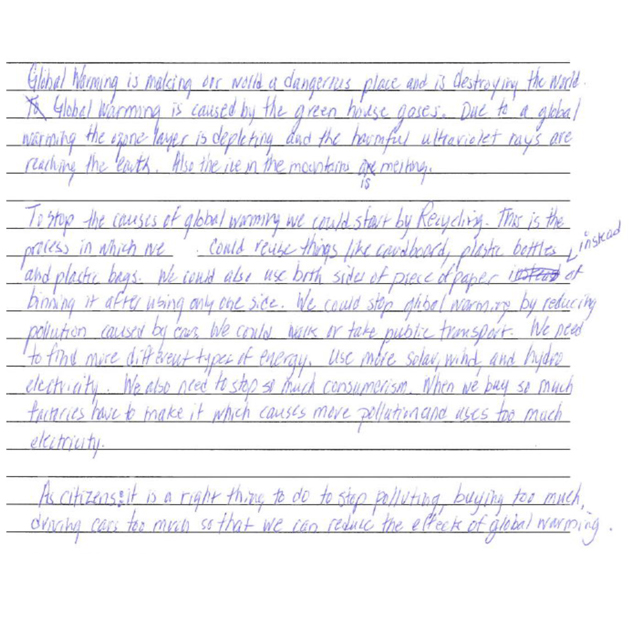 Global Warming is making our world a dangerous place and is destroying the world.
Global Warming is caused by the green house gases. Due to a global
warming the ozone layer is depleting and the harmful ultraviolet rays are
reaching the earth. Also the ice in the mountains is melting.
To stop the causes of global warming we could start by Recycling. This is the
process in which we could reuse things like cardboard, plastic bottles instead
and plastic bags. We could also use both sides of piece of paper of
binning it after using only one side. We could stop global warming by reducing
pollution caused by cars. We could walk or take public transport. We need
to find more different types of energy. Use more solar, wind, and hydro
electricity. We also need to stop so much consumerism. When we buy so much
factories have to make it which causes more pollution and uses too much
electricity.
As citizens it is a right thing to do to stop polluting, buying too much,
driving cars too much so that we can reduce the effects of global warming.